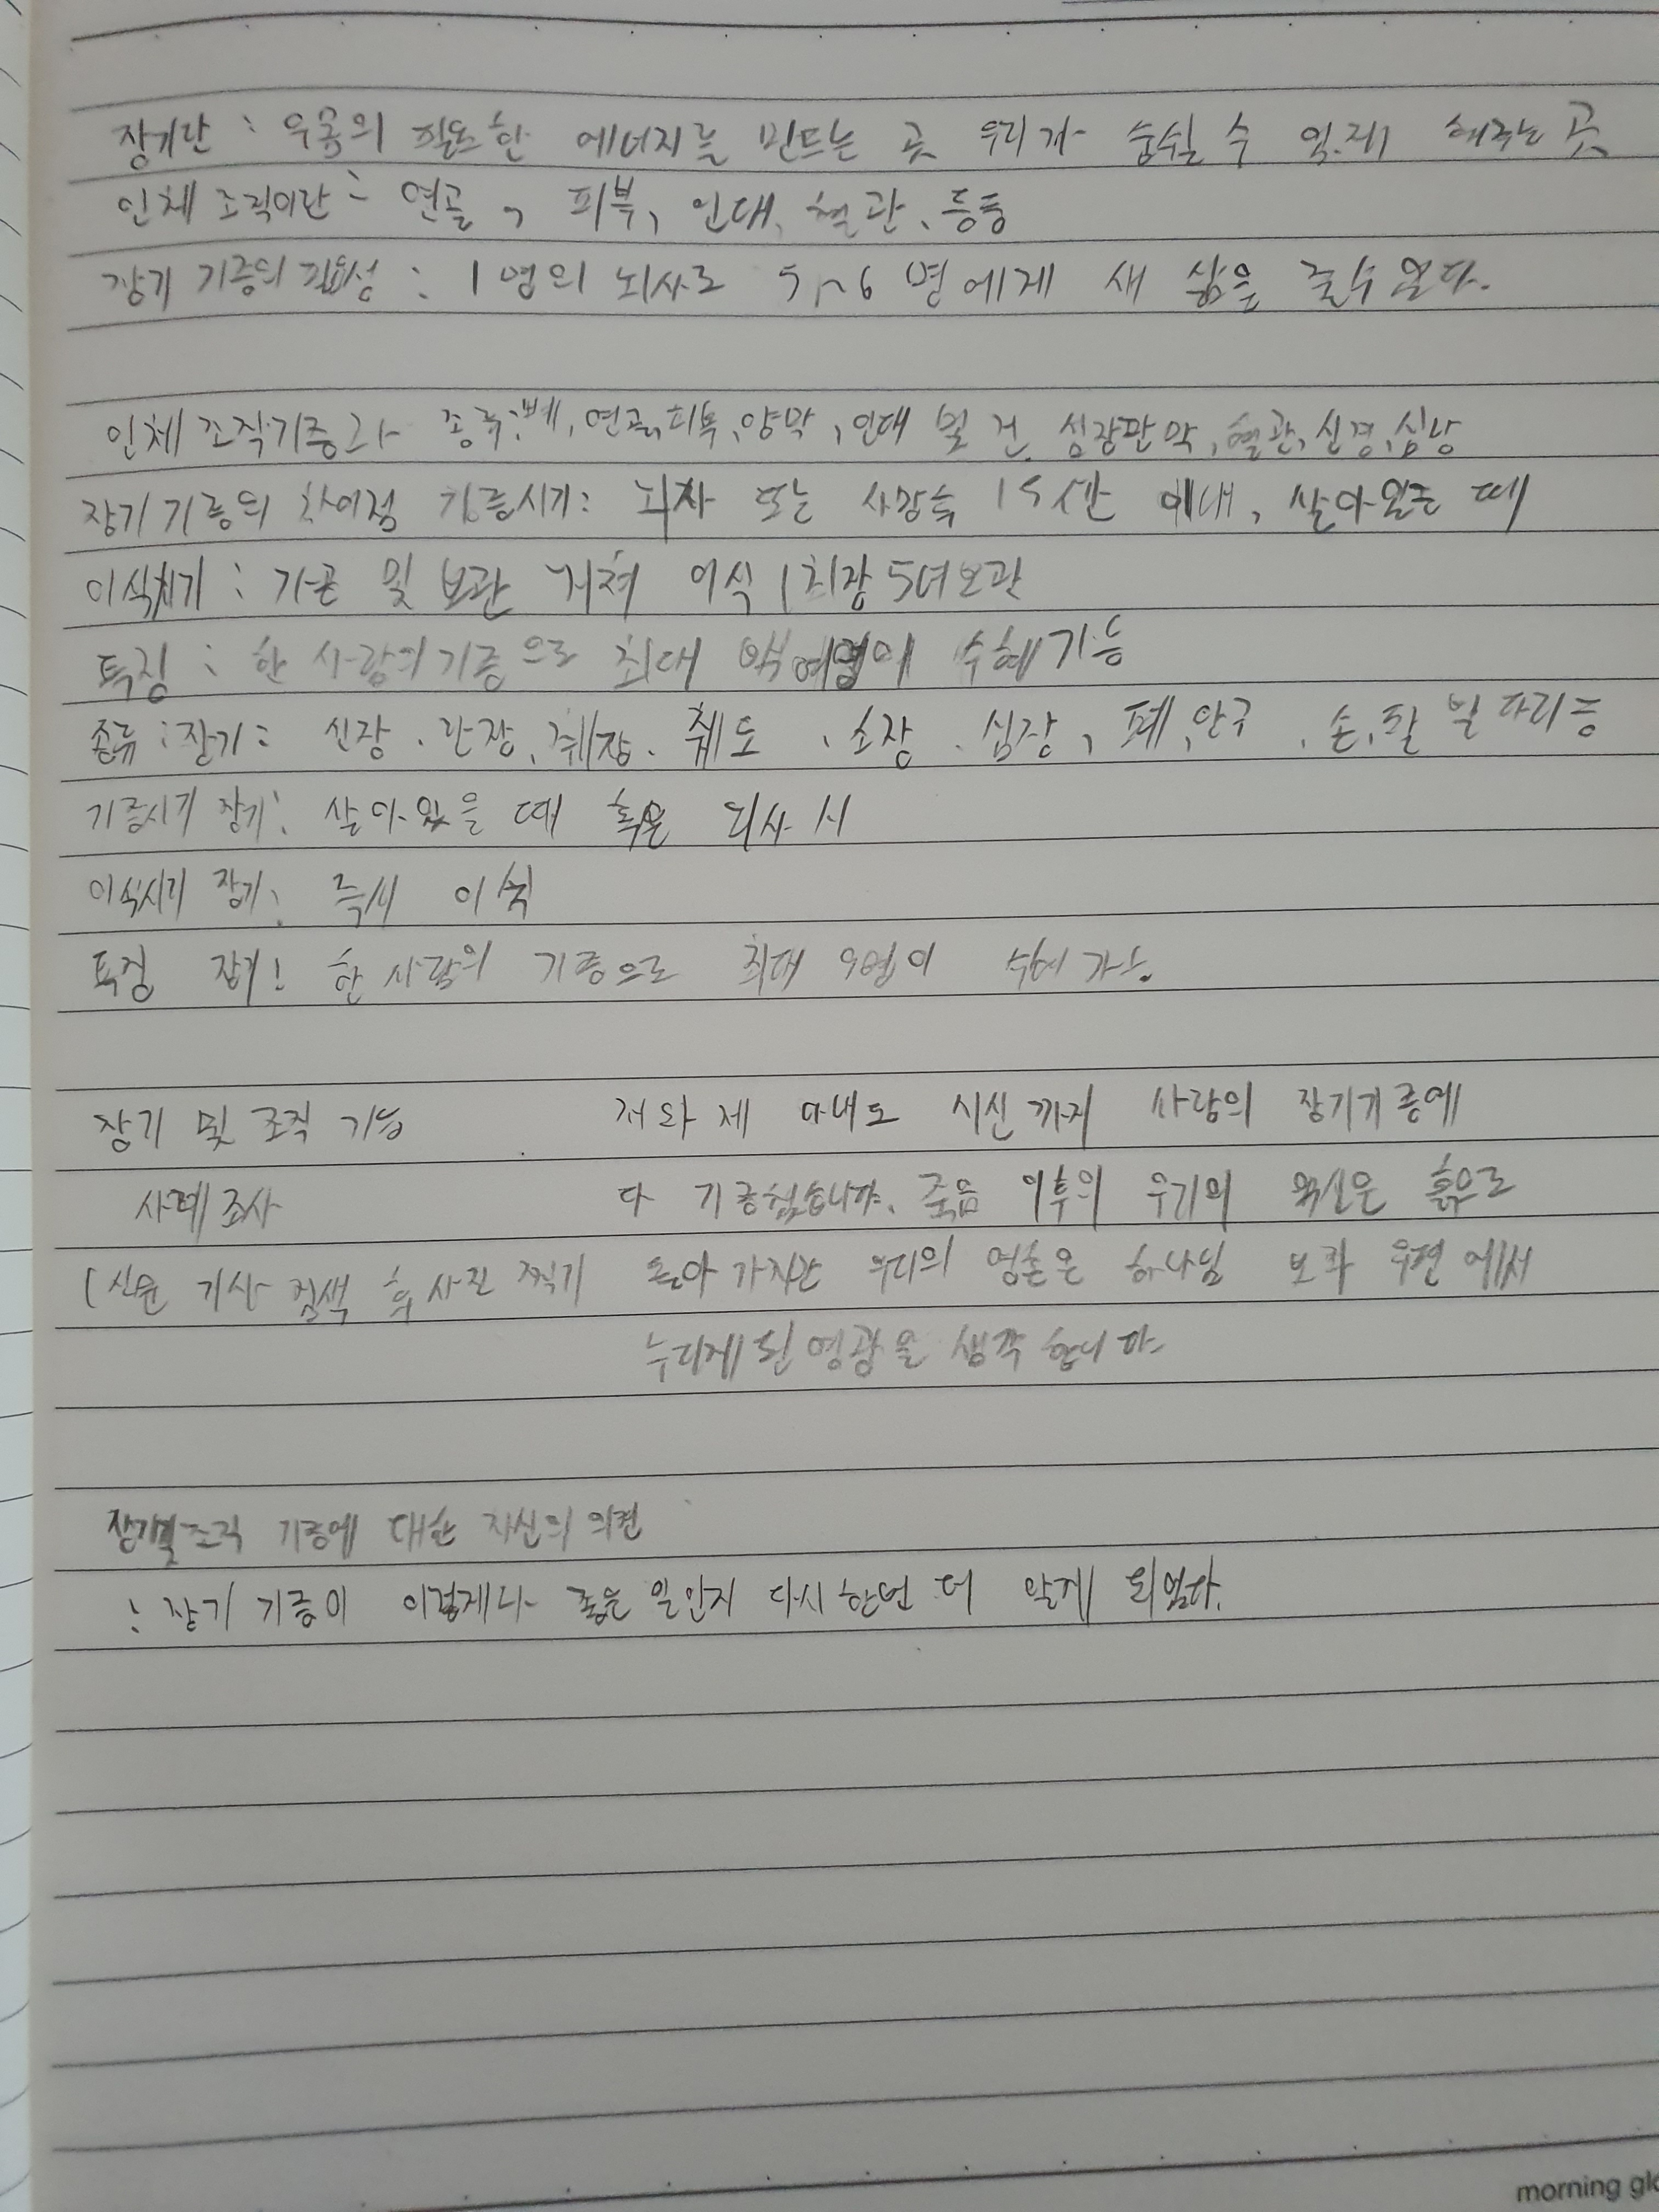 장기란 : 우리 몸의 필요한 에너지를 만드는 곳 우리가 숨쉴 수 있게 해주는 곳
인체 조직이란 : 연골, 피부, 인대, 혈관, 등등
장기 기증의 필요성 : 1명의 뇌사로 5~6명에게 새 삶을 줄수있다.
인체 조직기증과 종류:뼈, 연골,피부,양막, 인대 및 건, 심장판막, 혈관, 신경, 심낭
장기기증의 차이점 기증시기: 뇌사 또는 사망후 15시간 이내, 살아있을 때
이식시기 : 가공 및 보관 거쳐 이식 (최장5년보관
특징 : 한 사람의 기증으로 최대 백여명이 수혜가능
종류:장기: 신장, 간장, 췌장, 췌도, 소장, 심장, 폐, 안구, 손,팔 및 다리 등
기증시기 장기: 살아있을 때 혹은 뇌사 시
이식시기 장기: 즉시 이식
특징 장기: 한 사람의 기증으로 최대 9명이 수혜 가능
장기 및 조직 기능 저와 제 아내도 시신까지 사랑의 장기기증에
사례조사 다 기증했습니다. 죽음 이후의 우리의 육신은 흙으로
(신문 기사 검색 후 사진 찍기 돌아가지만 우리의 영혼은 하나님 보좌 우편에서
누리게 된 영광을 생각합니다.
장기및조직 기증에 대한 자신의 의견
: 장기 기증이 이렇게나 좋은 일인지 다시 한번 더 알게 되었다.
morning glo